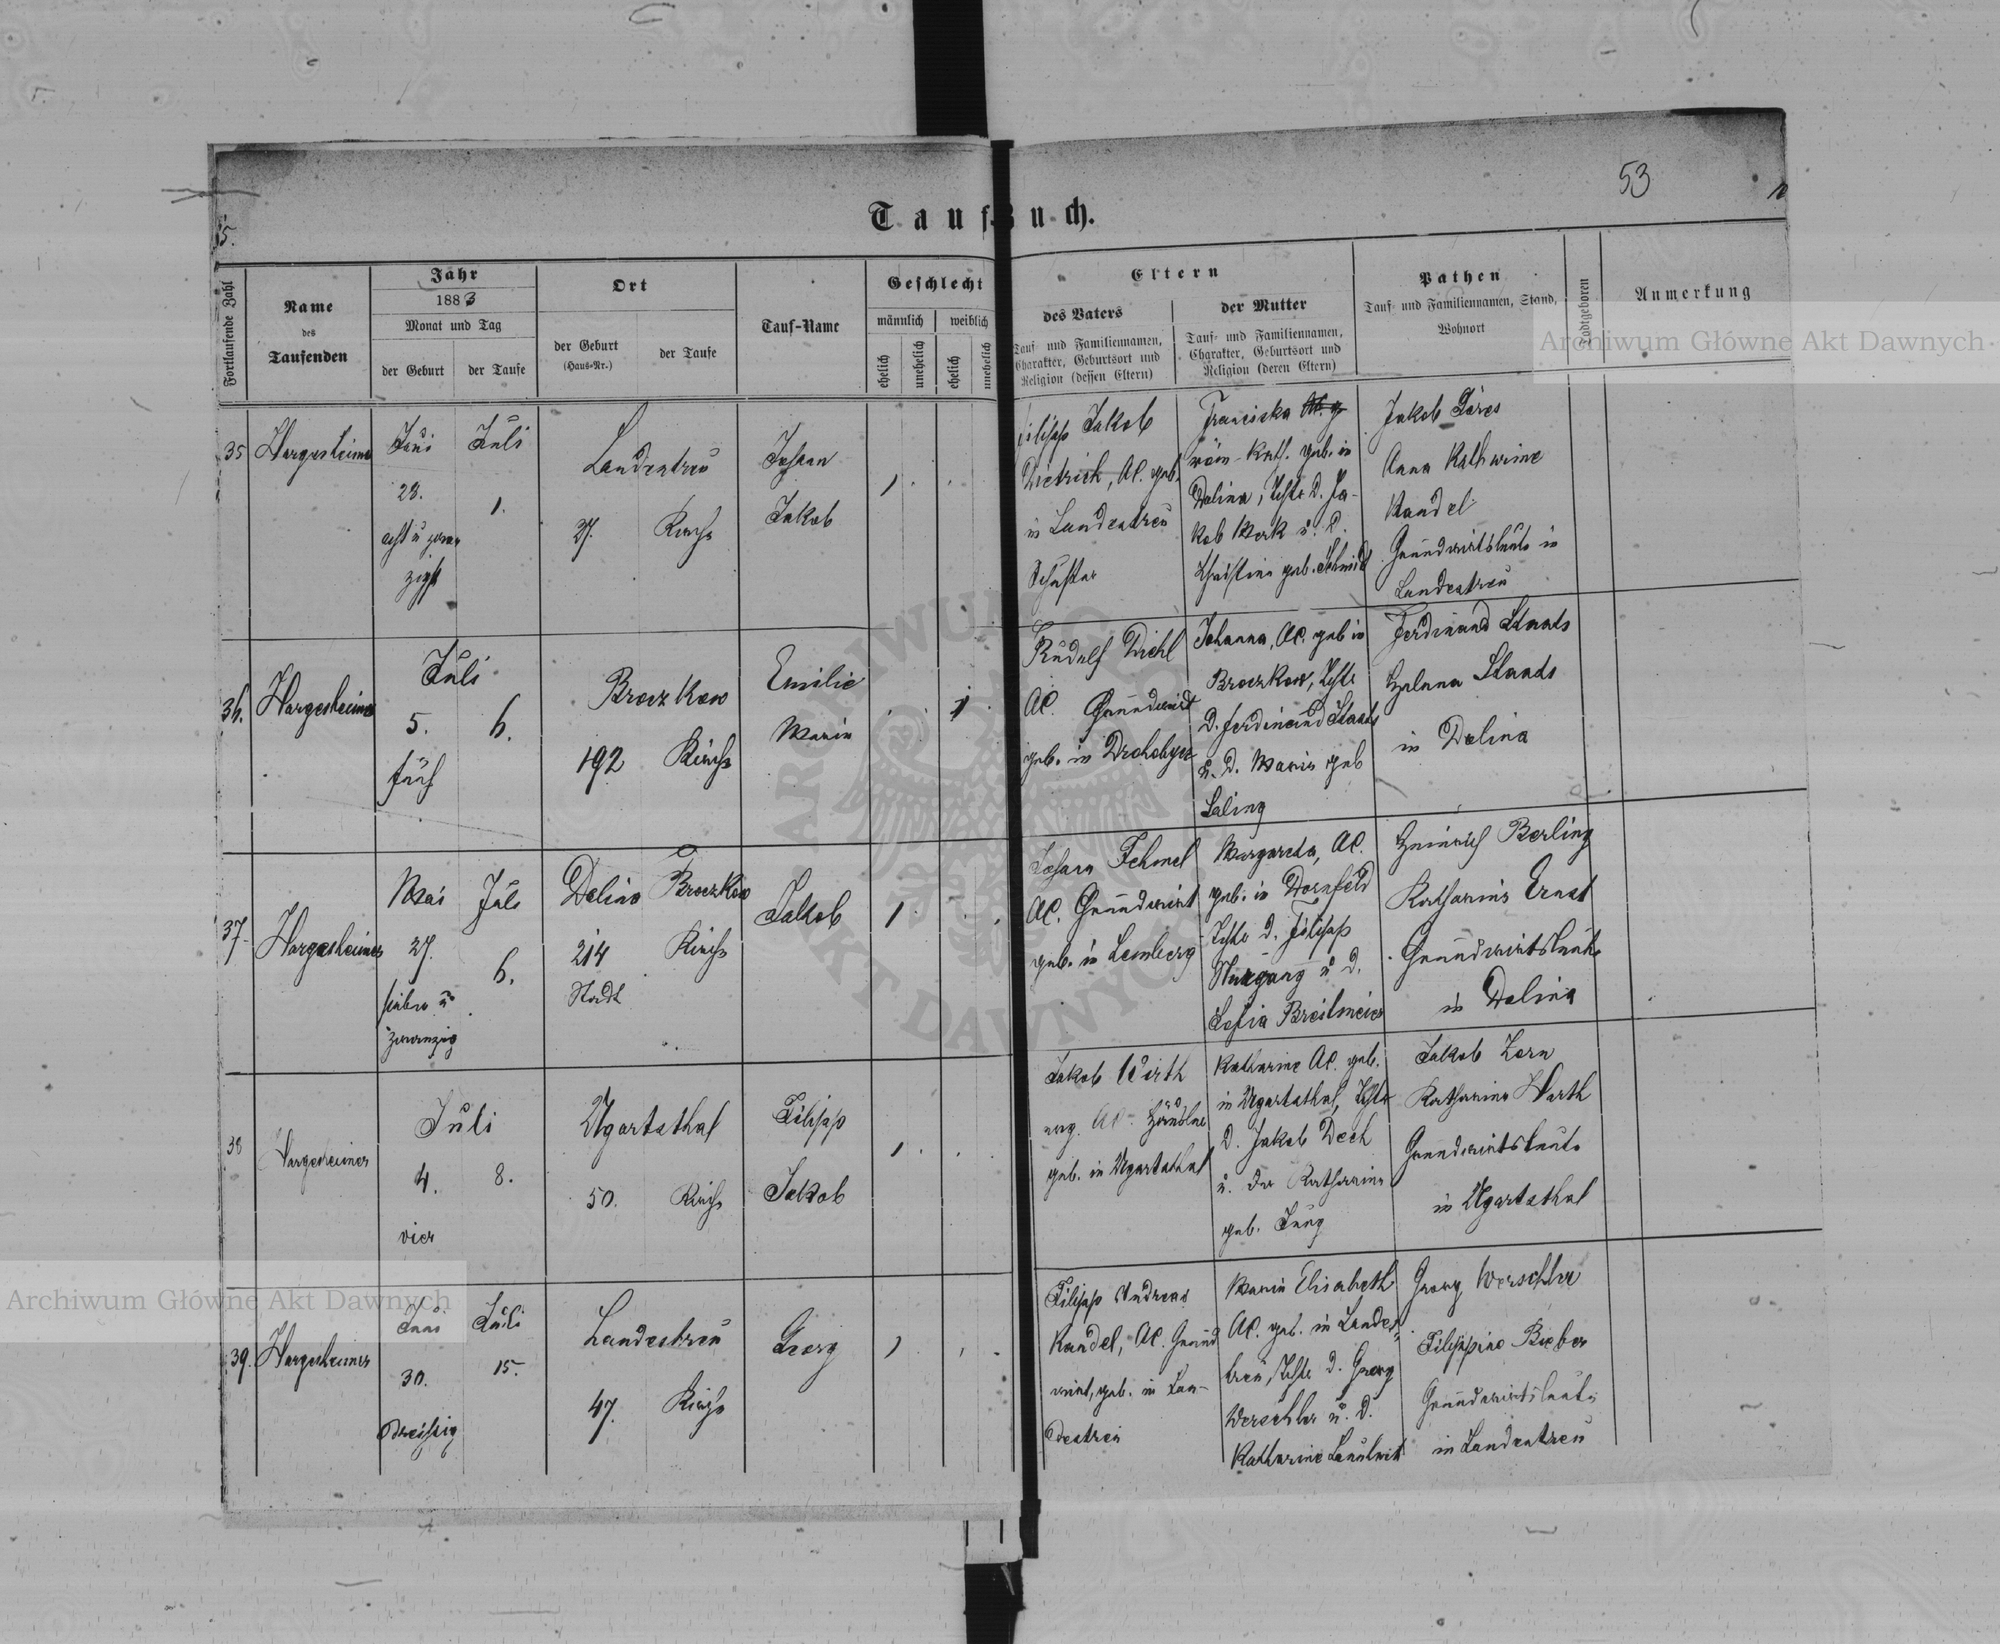 53
Taufbuch.
5.
Fortlaufende Zahl
Name
des
Taufenden
Jahr
1883
Monat und Tag
der Geburt
der Taufe
Ort
der Geburt
(Haus-Nr.)
der Taufe
Tauf-Name
Geschlecht
männlich
weiblich
ehelich
unehelich
ehelich
unehelich
Eltern
des Vaters
Tauf- und Familiennamen,
Charakter, Geburtsort und
Religion (dessen Eltern)
der Mutter
Tauf- und Familiennamen,
Charakter, Geburtsort und
Religion (deren Eltern)
Pathen
Tauf- und Familiennamen, Stand,
Wohnort
Todtgeboren
Anmerkung
35
Hargesheimer
Juni
28.
acht u zwan
zigst
Juli
1.
Landestreu
27.
Kirche
Johann
Jakob
Filipp Jakob
Dietrich, AC. geb.
in Landestreu
Schuster
Franciska
röm-kath. geb. in
Dolina, Tchtr D. Ja-
kob Mork u. d.
Christine geb. Schmidt
Jakob
Anna Katharine
Kandel
Grundwirtsleute in
Landestreu
36.
Hargesheimer
Juli
5.
fünf
6.
Broczkow
192
Kirche
Emilie
Marie
Rudolf Diehl
AC. Grundwirt
geb. in Drohobycz
Johanna, AC. geb in
Broczkow, Tchtr
D. Ferdinand Staads
u. D. Marie geb
Ferdinand Staads
Helena Staads
in Dolina
37.
Hargesheimer
Mai
27.
sieben u
zwanzig
Juli
6.
Dolina
214
Stadt
Broczkow
Kirche
Jakob
Johann Fehmel
AC. Grundwirt
geb. in Lemberg
Margareta, AC.
geb. in Dornfeld
Tchtr D. Filipp
u D.
Sofia Breitmeier
Heinrich Berling
Katharine Ernst
Grundwirtsleute
in Dolina
38
Hargesheimer
Juli
4.
vier
8.
Ugartsthal
50.
Kirche
Filipp
Jakob
Jakob Wirth
AC.
geb. in Ugartsthal
Katharine AC. geb.
in Ugartsthal, Tchtr
D. Jakob Dech
u. der Katharine
geb. Jung
Jakob Zorn
Katharine Harth
Grundwirtsleute
in Ugartsthal
39.
Hargesheimer
Juni
30.
Dreißig
Juli
15.
Landestreu
47.
Kirche
Georg
Filipp Andreas
Kandel, AC. Grund
wirt, geb. in Lan-
destreu
Marie Elisabeth
AC. geb. in Landes-
treu, Tchtr D. Georg
Werschler u. D.
Katharine
Georg Werschler
Filippine Bieber
Grundwirtsleute
in Landestreu
Archiwum Główne Akt Dawnych
Archiwum Główne Akt Dawnych
ARCHIWUM GŁÓWNE AKT DAWNYCH